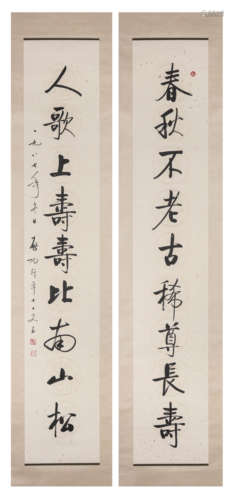 春秋不老古稀尊長壽
人歌上壽壽比南山松
一九八七年
啟功